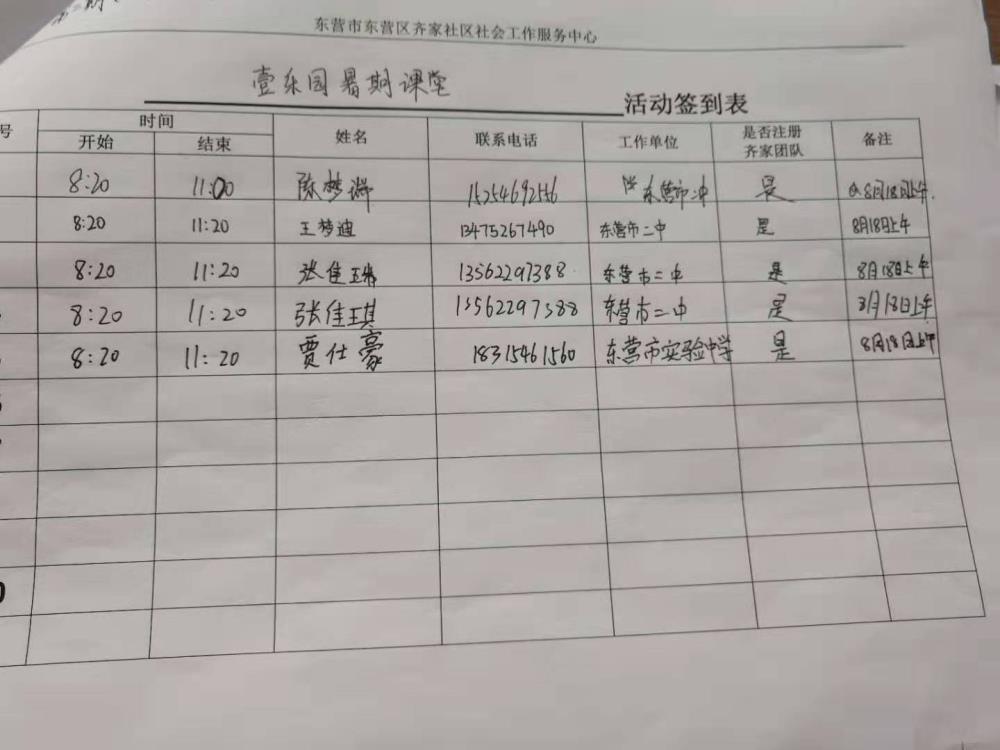 东营市东营区齐家社区社会工作服务中心
壹乐园暑期课堂 活动签到表
号 时间 姓名 联系电话 工作单位 是否注册齐家团队 备注
开始 结束
8:20 11:00 陈梦 15254692156 东营市 是 8月18日上午.
8:20 11:20 王梦迪 13475267490 东营市二中 是 8月18日上午
8:20 11:20 张佳琳 13562297388 东营市二中 是 8月18日上午
8:20 11:20 张佳琪 13562297388 东营市二中 是 8月18日上午
8:20 11:20 贾仕豪 18315461560 东营市实验中学 是 8月18日上午